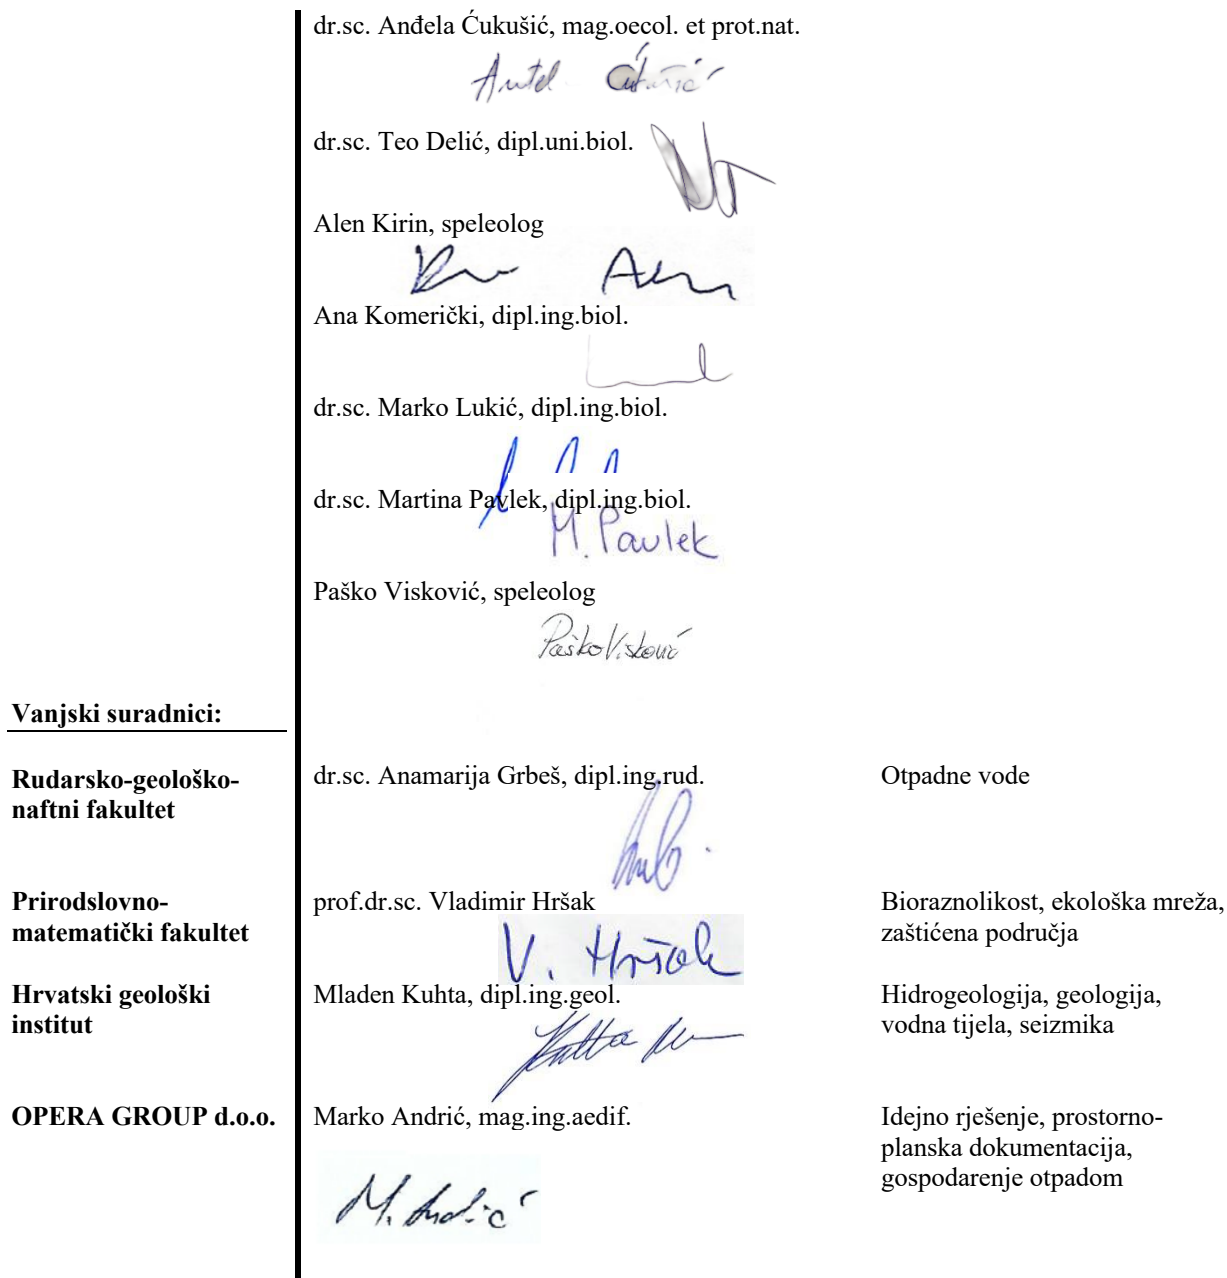 dr.sc. Anđela Ćukušić, mag.oecol. et prot.nat.
dr.sc. Teo Delić, dipl.uni.biol.
Alen Kirin, speleolog
Ana Komerički, dipl.ing.biol.
dr.sc. Marko Lukić, dipl.ing.biol.
dr.sc. Martina Pavlek, dipl.ing.biol.
M. Pavlek
Paško Visković, speleolog
Paško Visković
Vanjski suradnici:
Rudarsko-geološko-
naftni fakultet
dr.sc. Anamarija Grbeš, dipl.ing.rud.
Otpadne vode
Prirodslovno-
matematički fakultet
prof.dr.sc. Vladimir Hršak
V. Hršak
Bioraznolikost, ekološka mreža,
zaštićena područja
Hrvatski geološki
institut
Mladen Kuhta, dipl.ing.geol.
Hidrogeologija, geologija,
vodna tijela, seizmika
OPERA GROUP d.o.o.
Marko Andrić, mag.ing.aedif.
M. Andrić
Idejno rješenje, prostorno-
planska dokumentacija,
gospodarenje otpadom